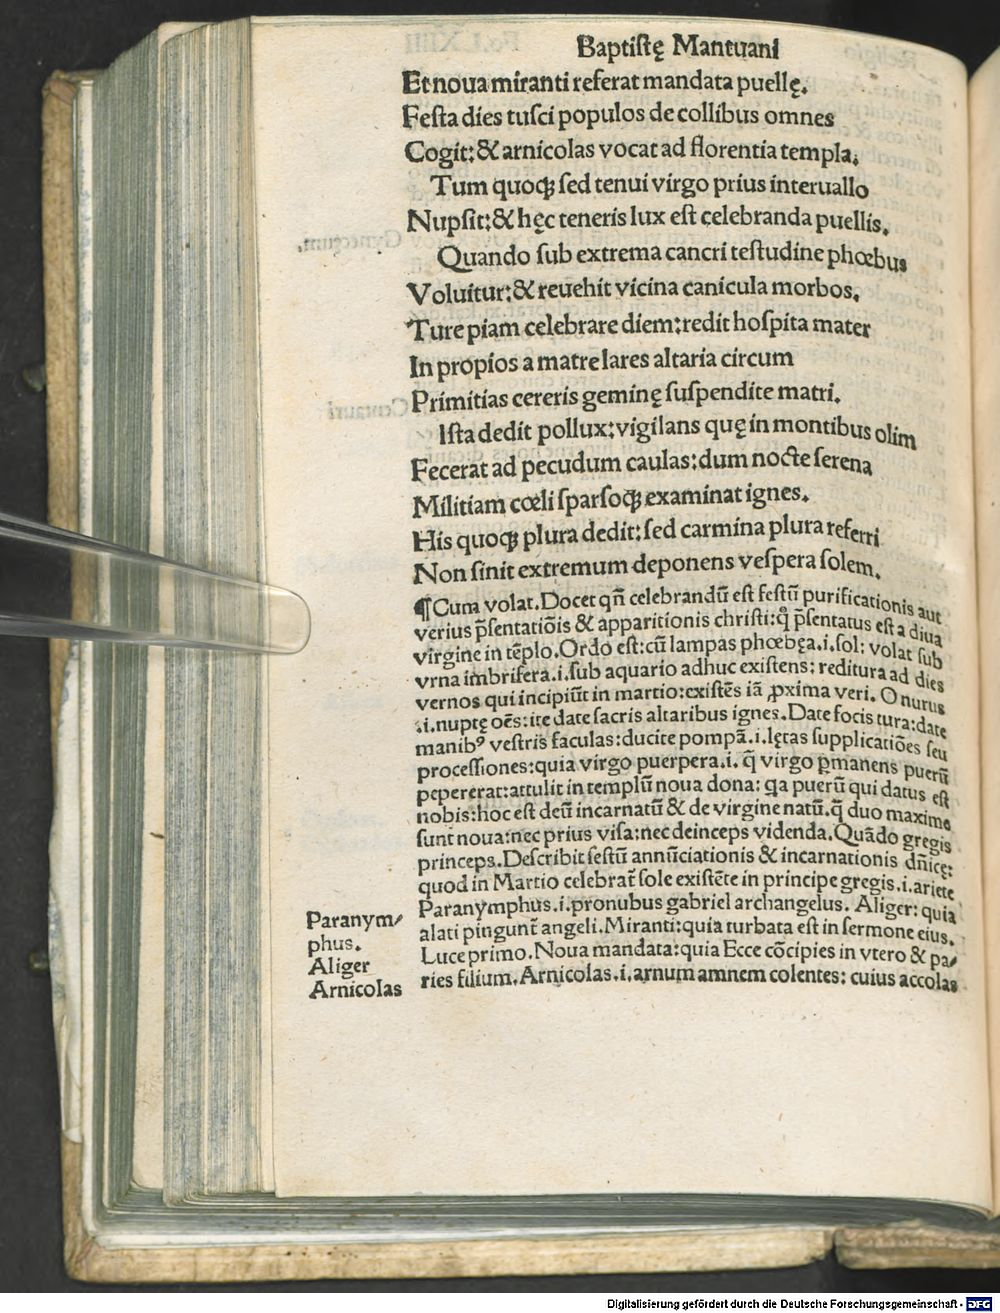 Baptistę Mantuani
Et noua miranti referat mandata puellę.
Festa dies tusci populos de collibus omnes
Cogit: & arnicolas vocat ad florentia templa.
Tum quoqꝫ sed tenui virgo prius interuallo
Nupsit: & hęc teneris lux est celebranda puellis.
Quando sub extrema cancri testudine phœbus
Voluitur: & reuehit vicina canicula morbos.
Ture piam celebrare diem: redit hospita mater
In propios a matre lares altaria circum
Primitias cereris geminę suspendite matri.
Ista dedit pollux: vigilans quę in montibus olim
Fecerat ad pecudum caulas: dum nocte serena
Militiam cœli sparsoqꝫ examinat ignes.
His quoqꝫ plura dedit: sed carmina plura referri
Non sinit extremum deponens vespera solem.
¶Cum volat. Docet qñ celebrandū est festū purificationis aut
verius p̄sentatiōis & apparitionis christi: q̊ p̄sentatus est a diua
virgine in tēplo. Ordo est: cū lampas phœbęa .i. sol: volat sub
vrna imbrifera .i. sub aquario adhuc existens: reditura ad dies
vernos qui incipiūt in martio: existēs iā ꝓxima veri. O nurus
.i. nuptę oēs: ite date sacris altaribus ignes. Date focis tura: date
manibꝰ vestris faculas: ducite pompā .i. lętas supplicatiōes seu
processiones: quia virgo puerpera .i. q̄ virgo ꝑmanens puerū
pepererat: attulit in templū noua dona: qa puerū qui datus est
nobis: hoc est deū incarnatū & de virgine natū. q̄ duo maxime
sunt noua: nec prius visa: nec deinceps videnda. Quādo gregis
princeps. Describit festū annūciationis & incarnationis dn̄icę:
quod in Martio celebrat̄ sole existēte in principe gregis .i. ariete
Paranymphus .i. pronubus gabriel archangelus. Aliger: quia
alati pingunt̄ angeli. Miranti: quia turbata est in sermone eius.
Luce primo. Noua mandata: quia Ecce cōcipies in vtero & pa/
ries filium. Arnicolas .i. arnum amnem colentes: cuius accolas
Paranym/
phus.
Aliger
Arnicolas
Digitalisierung gefördert durch die Deutsche Forschungsgemeinschaft - DFG